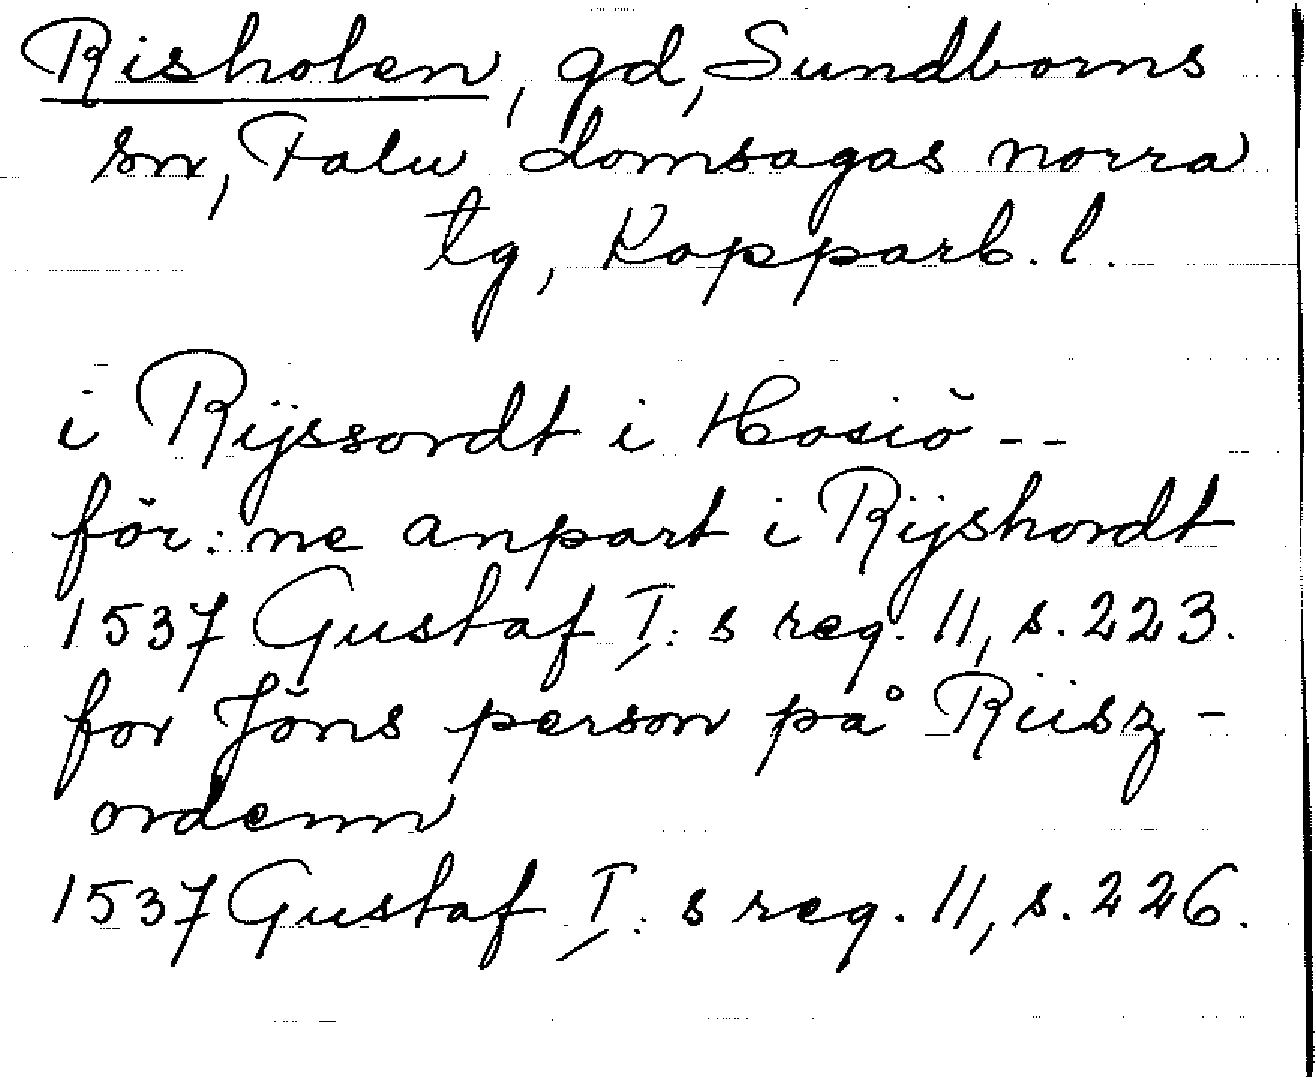 Risholen, gd, Sundborns
sn, Falu domsagas norra
tg, Kopparb. l.
i Rijssordt i Hosiö --
för: ne anpart i Rijshordt
1537 Gustaf I: s reg. 11, s. 223.
for Jöns person på Riisz-
ordenn
1537 Gustaf I: s reg. 11, s. 226.